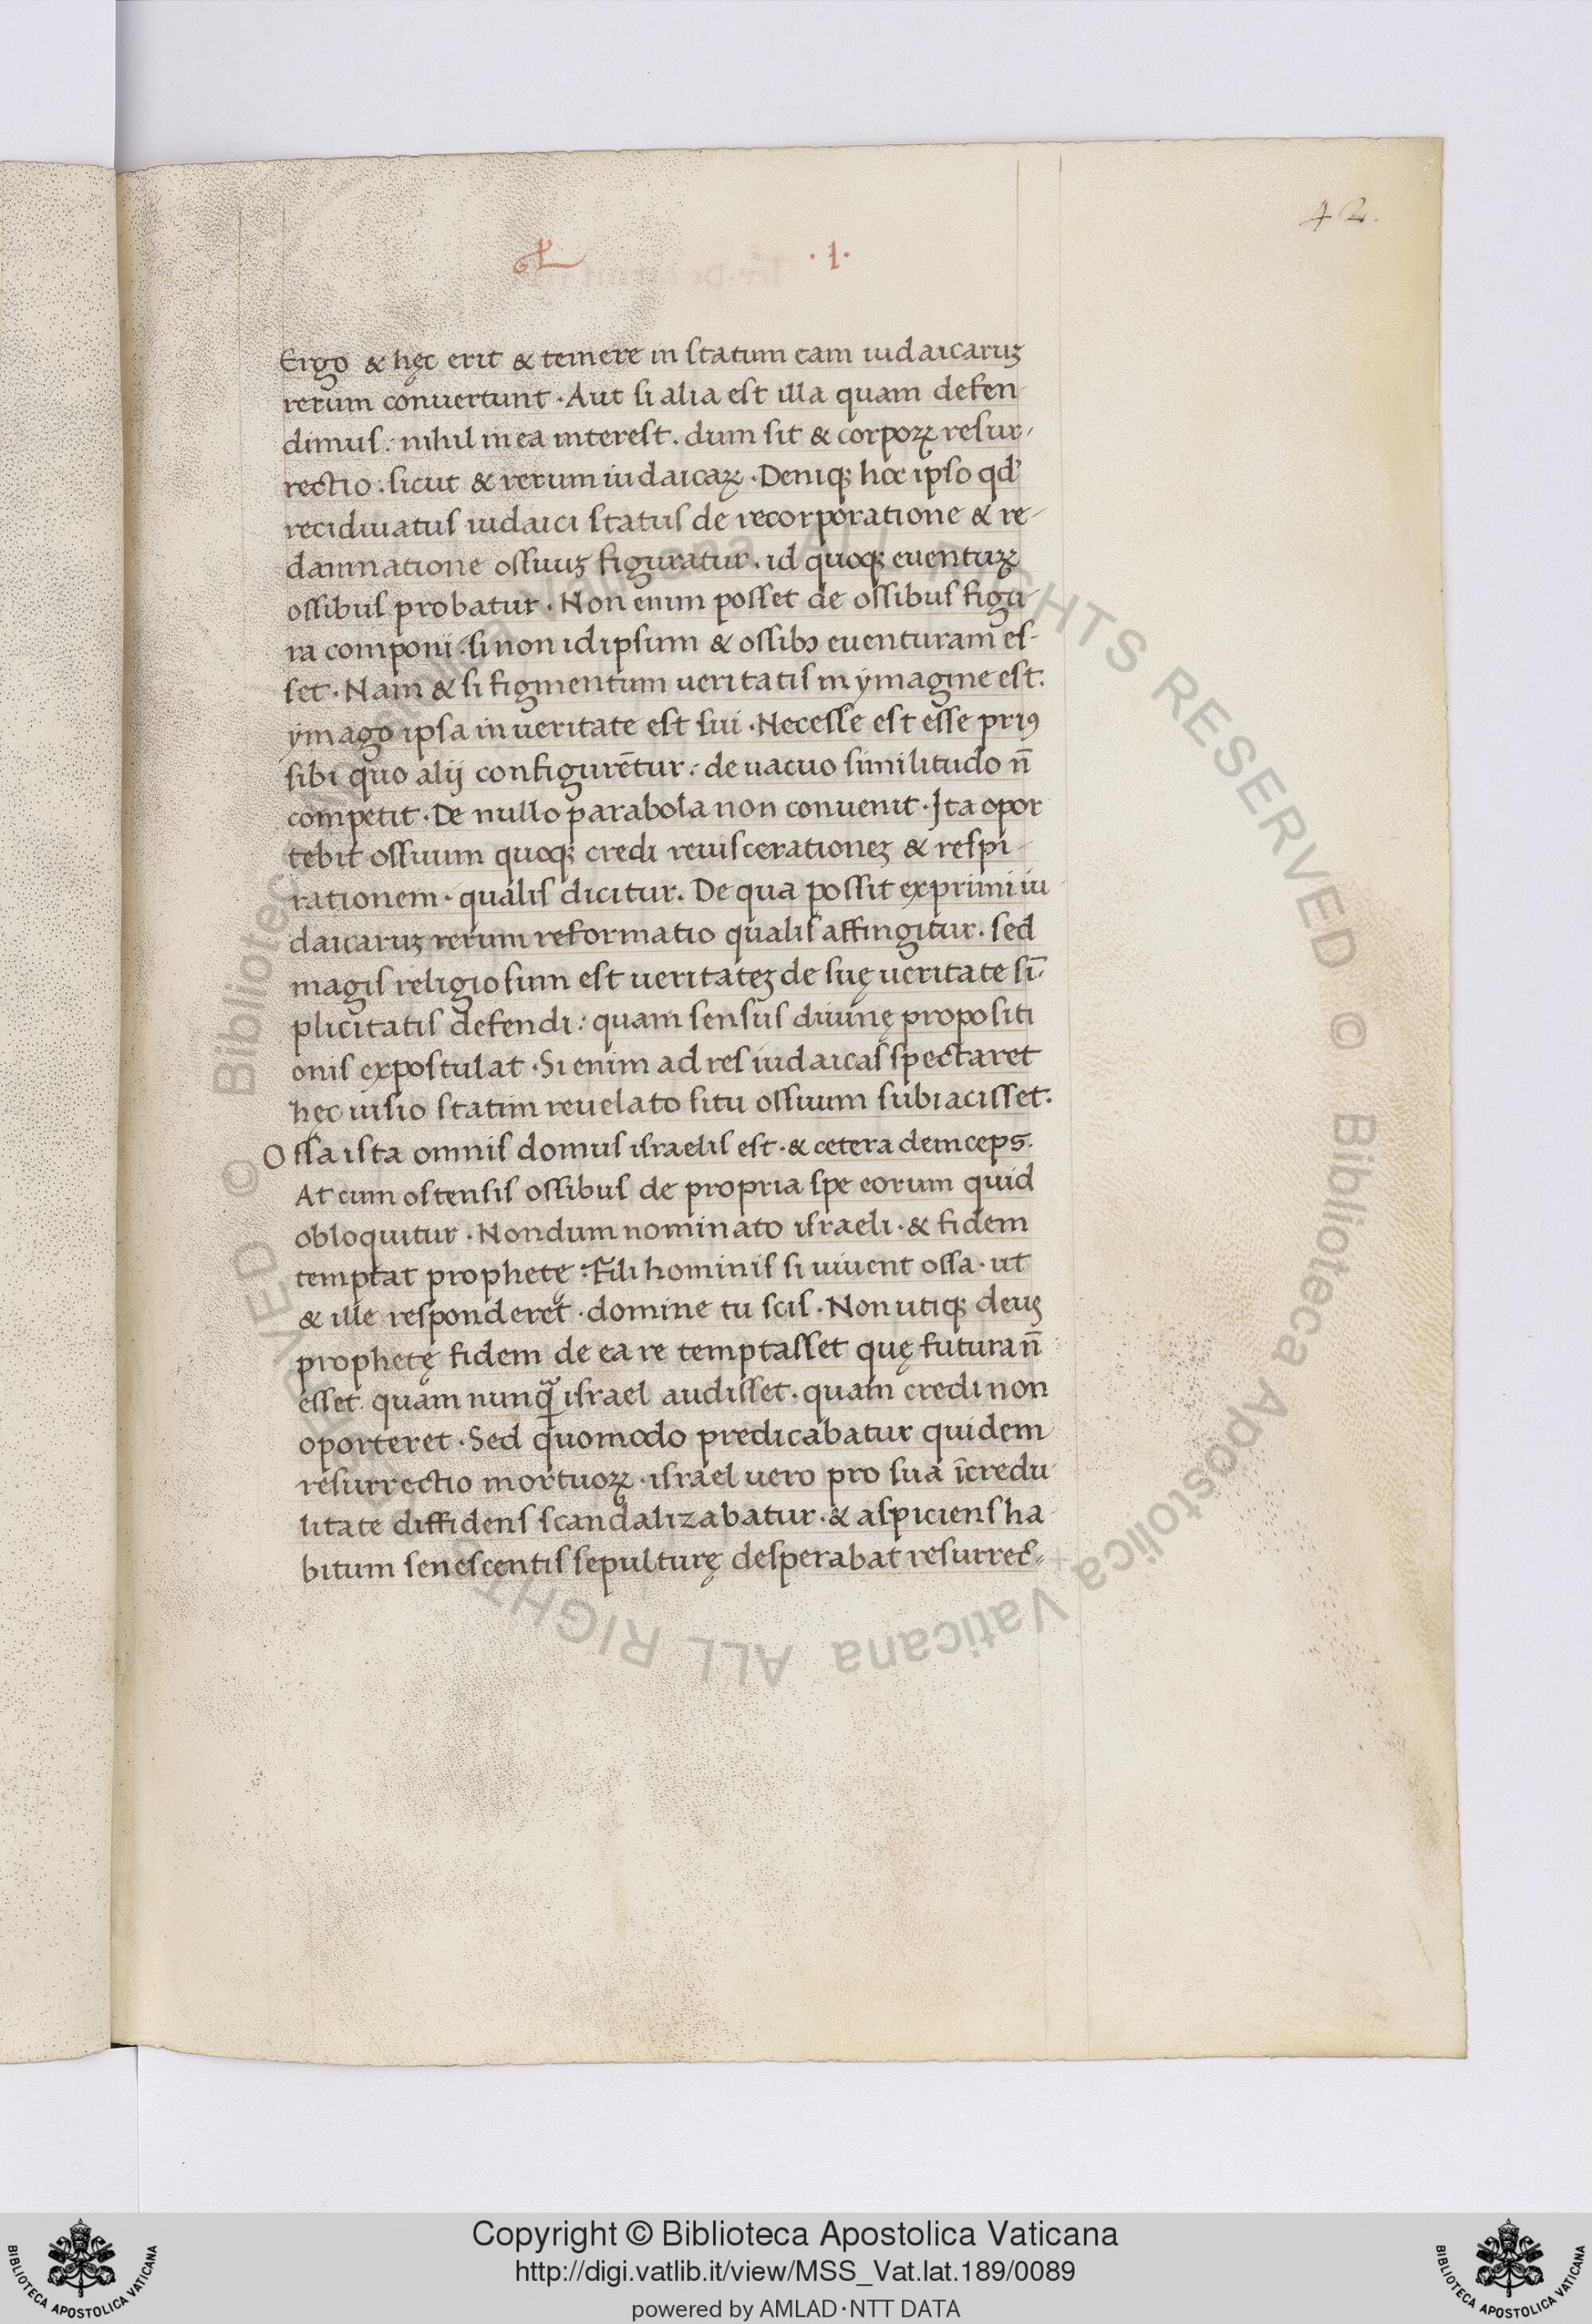 42.
·1·
Ergo & hęc erit & temere in statum eam iudaicaruꝫ
rerum conuertunt · Aut si alia est illa quam defen
dimus : nihil in ea interest . dum sit & corpoꝝ resur-
rectio : sicut & rerum iudaicaꝝ · Deniqꝫ hoc ipso qď
recidiuatus iudaici status de recorporatione & re-
damnatione ossiuꝫ figuratur . id quoqꝫ euentuꝝ
ossibus probatur · Non enim posset de ossibus figu-
ra componi : si non id ipsum & ossibꝫ euenturam es-
set · Nam & si figmentum ueritatis in ymagine est .
ymago ipsa in ueritate est sui · Necesse est esse priꝰ
sibi quo alij configurētur : de uacuo similitudo n̄
competit · De nullo parabola non conuenit · Ita opor
tebit ossium quoqꝫ credi reuiscerationeꝫ & respi-
rationem · qualis dicitur . De qua possit exprimi iu
daicaruꝫ rerum reformatio qualis affingitur . sed
magis religiosum est ueritateꝫ de suę ueritate sī-
plicitatis defendi : quam sensus diuinę propositi
onis expostulat · Si enim ad res iudaicas spectaret
hęc uisio statim reuelato situ ossium subiacisset .
Ossa ista omnis domus israelis est · & cetera deinceps .
At cum ostensis ossibus de propria spe eorum quid
obloquitur · Nondum nominato israeli · & fidem
temptat prophetę : Fili hominis si uiuent ossa · ut
& ille responderet · domine tu scis · Non utiqꝫ deuꝫ
prophetę fidem de ea re temptasset quę futura n̄
esset quam nunꝗ̄ israel audisset . quam credi non
oporteret · Sed quomodo predicabatur quidem
resurrectio mortuoꝝ · israel uero pro sua īcredu
litate diffidens scandalizabatur · & aspiciens ha
bitum senescentis sepulturę desperabat resurrec-
Copyright © Biblioteca Apostolica Vaticana
http://digi.vatlib.it/view/MSS_Vat.lat.189/0089
powered by AMLAD·NTT DATA
BIBLIOTECA APOSTOLICA VATICANA
BIBLIOTECA APOSTOLICA VATICANA